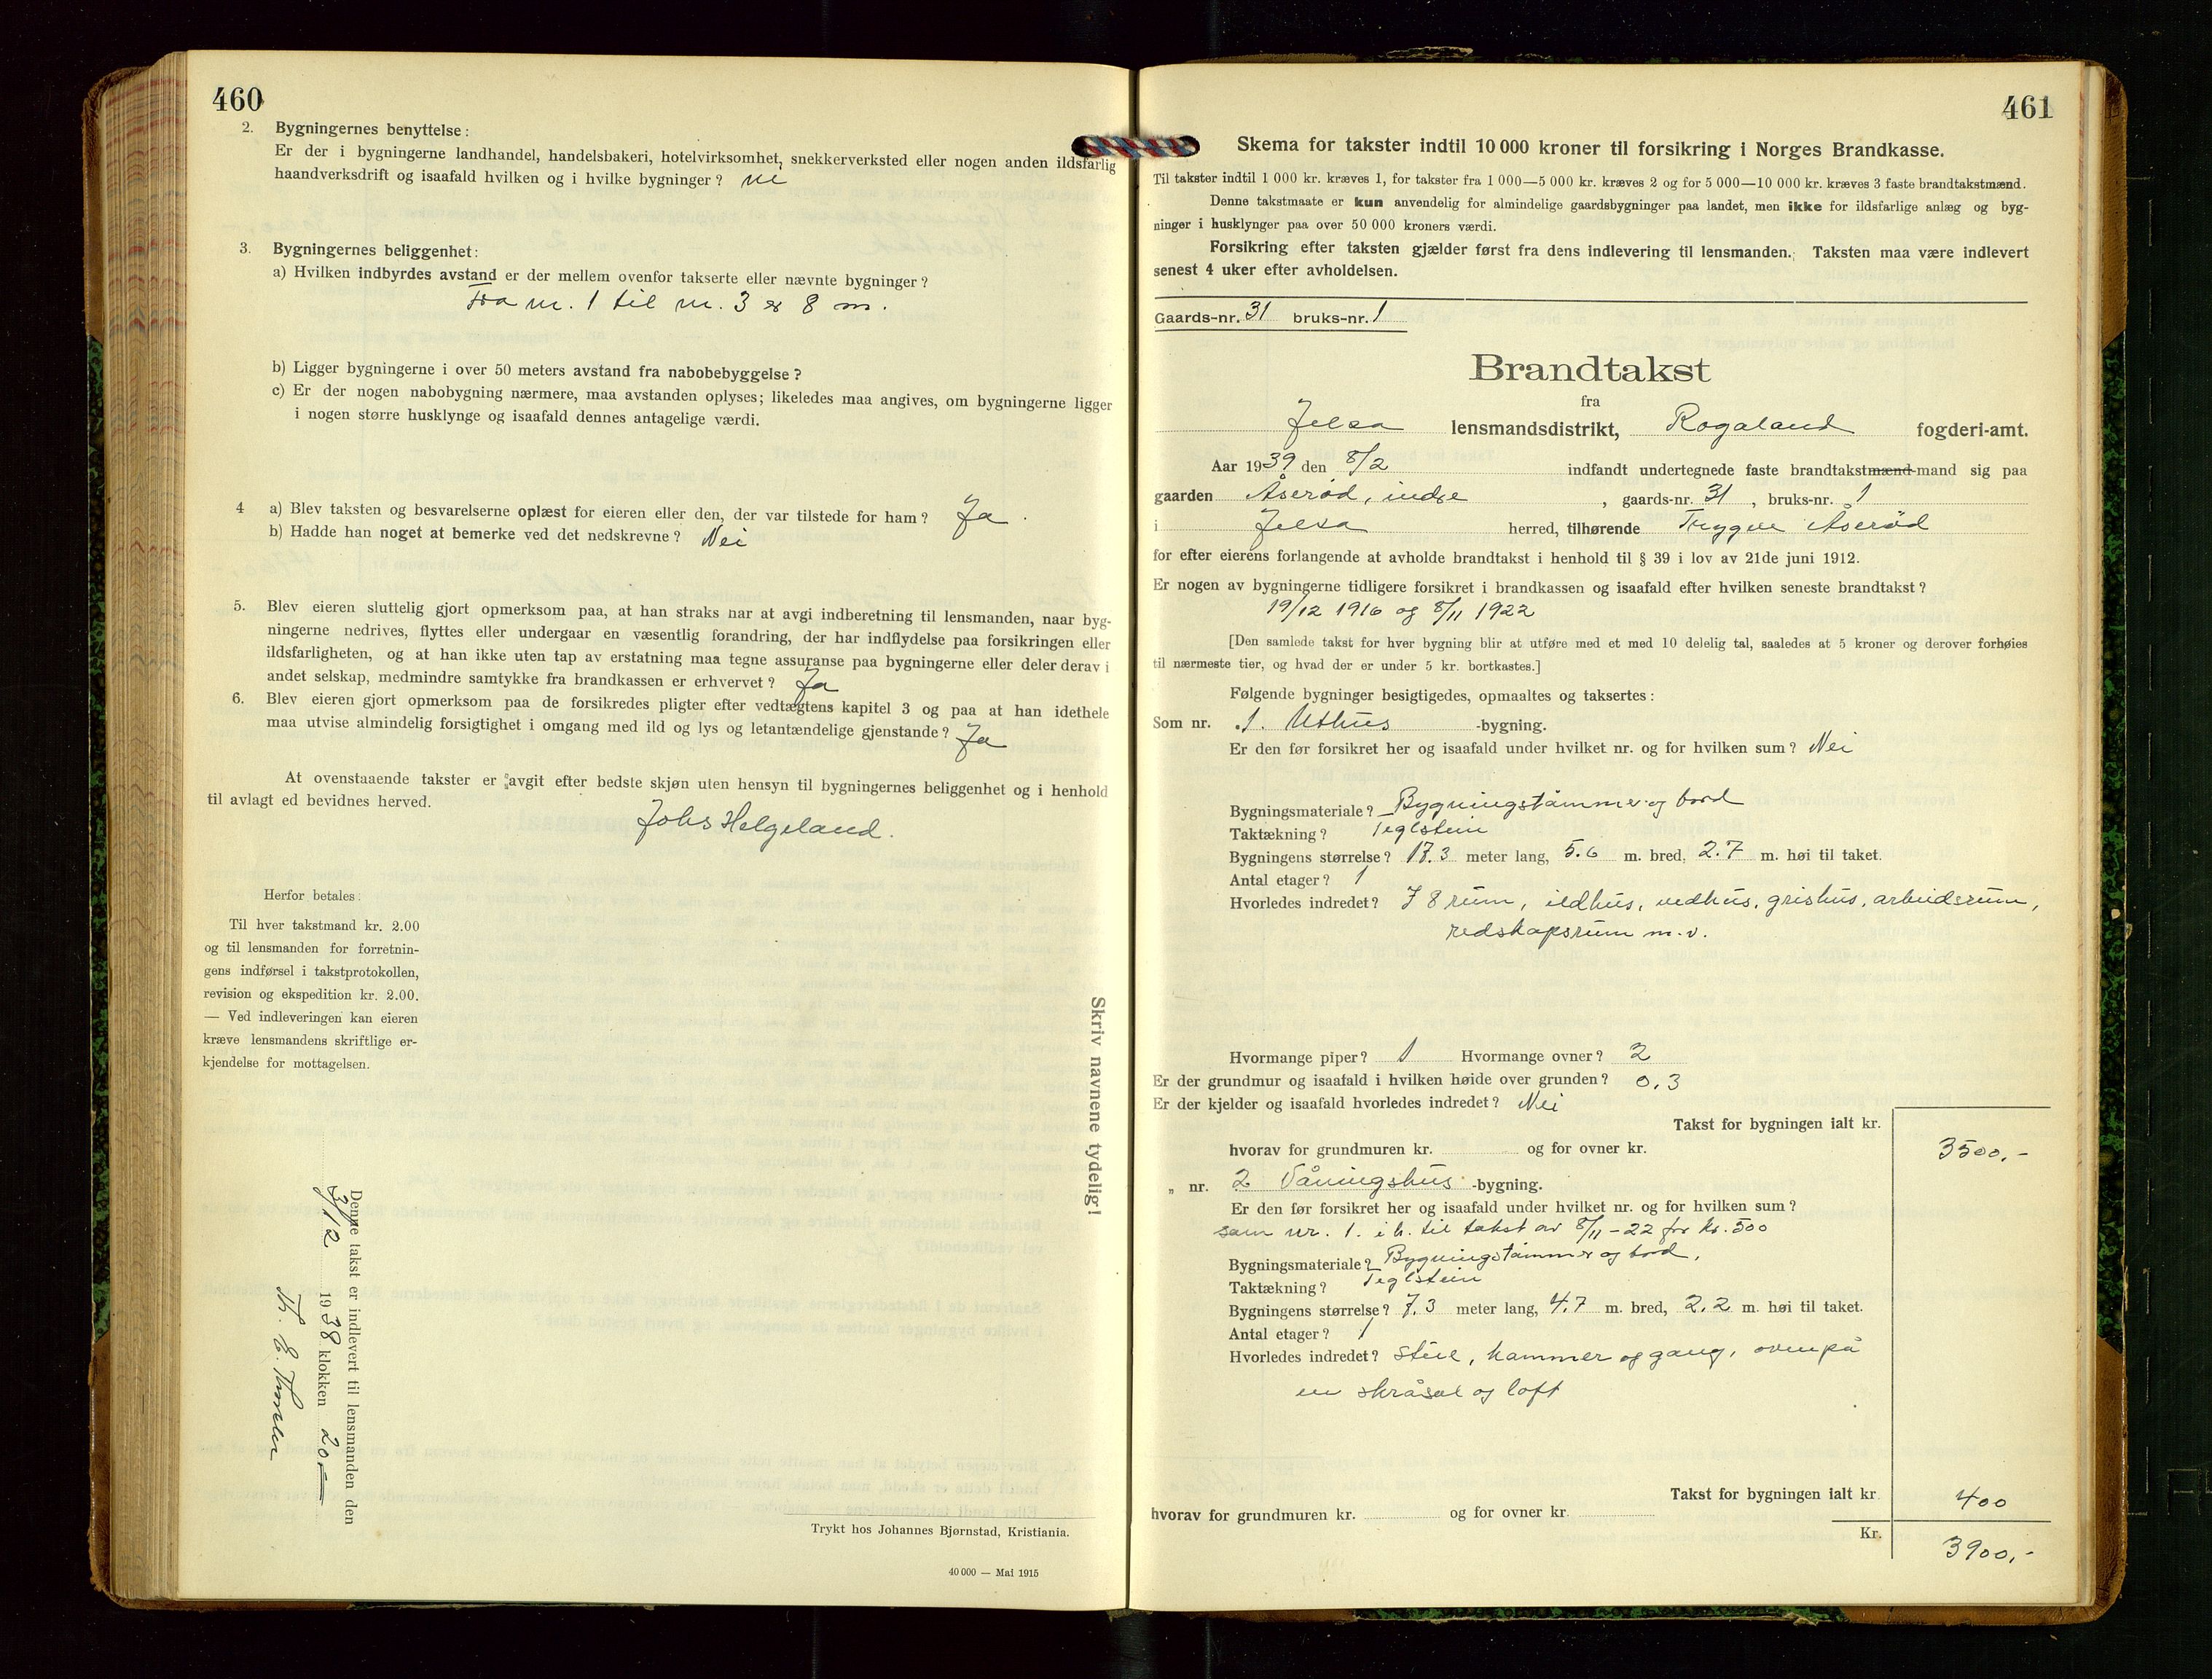 460
2. Bygningernes benyttelse:
Er der i bygningerne landhandel, handelsbakeri, hotelvirksomhet, snekkerverksted eller nogen anden ildsfarlig
haandverksdrift og isaafald hvilken og i hvilke bygninger? nei
3. Bygningernes beliggenhet:
a) Hvilken indbyrdes avstand er der mellem ovenfor takserte eller nævnte bygninger?
Fra nr. 1 til nr. 3 er 8 m.
b) Ligger bygningerne i over 50 meters avstand fra nabobebyggelse?
c) Er der nogen nabobygning nærmere, maa avstanden oplyses; likeledes maa angives, om bygningerne ligger
i nogen større husklynge og isaafald dennes antagelige værdi.
4 a) Blev taksten og besvarelserne oplæst for eieren eller den, der var tilstede for ham? Ja.
b) Hadde han noget at bemerke ved det nedskrevne? Nei
5. Blev eieren sluttelig gjort opmerksom paa, at han straks har at avgi indberetning til lensmanden, naar byg-
ningerne nedrives, flyttes eller undergaar en væsentlig forandring, der har indflydelse paa forsikringen eller
ildsfarligheten, og at han ikke uten tap av erstatning maa tegne assuranse paa bygningerne eller deler derav i
andet selskap, medmindre samtykke fra brandkassen er erhvervet? Ja
6. Blev eieren gjort opmerksom paa de forsikredes pligter efter vedtægtens kapitel 3 og paa at han idethele
maa utvise almindelig forsigtighet i omgang med ild og lys og letantændelige gjenstande? Ja
At ovenstaaende takster er avgit efter bedste skjøn uten hensyn til bygningernes beliggenhet og i henhold
til avlagt ed bevidnes herved.
Johs Helgeland.
Herfor betales:
Til hver takstmand kr. 2.00
og til lensmanden for forretnin-
gens indførsel i takstprotokollen,
revision og ekspedition kr. 2.00.
— Ved indleveringen kan eieren
kræve lensmandens skriftlige er-
kjendelse for mottagelsen.
Skriv navnene tydelig!
Denne takst er indlevert til lensmanden den
3/12 1938 klokken 20
Trykt hos Johannes Bjørnstad, Kristiania.
40 000 — Mai 1915
461
Skema for takster indtil 10 000 kroner til forsikring i Norges Brandkasse.
Til takster indtil 1 000 kr. kræves 1, for takster fra 1 000—5 000 kr. kræves 2 og for 5 000—10 000 kr. kræves 3 faste brandtakstmænd.
Denne takstmaate er kun anvendelig for almindelige gaardsbygninger paa landet, men ikke for ildsfarlige anlæg og byg-
ninger i husklynger paa over 50 000 kroners værdi.
Forsikring efter taksten gjælder først fra dens indlevering til lensmanden. Taksten maa være indlevert
senest 4 uker efter avholdelsen.
Gaards-nr. 31 bruks-nr. 1
Brandtakst
fra
Jelsa lensmandsdistrikt, Rogaland fogderi-amt.
Aar 1939 den 8/2 indfandt undertegnede faste brandtakstmænd-mand sig paa
gaarden Åserød, indre, gaards-nr. 31, bruks-nr. 1
i Jelsa herred, tilhørende Trygve Åserød
for efter eierens forlangende at avholde brandtakst i henhold til § 39 i lov av 21de juni 1912.
Er nogen av bygningerne tidligere forsikret i brandkassen og isaafald efter hvilken seneste brandtakst?
19/12 1916 og 8/11 1922
[Den samlede takst for hver bygning blir at utføre med et med 10 delelig tal, saaledes at 5 kroner og derover forhøies
til nærmeste tier, og hvad der er under 5 kr. bortkastes.]
Følgende bygninger besigtigedes, opmaaltes og taksertes:
Som nr. 1. Uthus -bygning.
Er den før forsikret her og isaafald under hvilket nr. og for hvilken sum? Nei
Bygningsmateriale? Bygningstømmer og bord
Taktækning? Teglstein
Bygningens størrelse? 17.3 meter lang, 5.6 m. bred, 2.7 m. høi til taket.
Antal etager? 1
Hvorledes indredet? I 8 rum, ildhus, vedhus, grishus, arbeidsrum,
redskapsrum m.v.
Hvormange piper? 1 Hvormange ovner? 2
Er der grundmur og isaafald i hvilken høide over grunden? 0,3
Er der kjelder og isaafald hvorledes indredet? Nei
Takst for bygningen ialt kr.
hvorav for grundmuren kr. og for ovner kr. 3500,-
„ nr. 2 Våningshus -bygning.
Er den før forsikret her og isaafald under hvilket nr. og for hvilken sum?
som nr. 1. i h. til takst av 8/11-22 for kr. 500
Bygningsmateriale? Bygningstømmer og bord,
Taktækning? Teglstein
Bygningens størrelse? 7.3 meter lang, 4.7 m. bred, 2.2 m. høi til taket.
Antal etager? 1
Hvorledes indredet? Stue, kammer og gang, ovenpå
en skråsal og loft
Takst for bygningen ialt kr. 400
hvorav for grundmuren kr. og for ovner kr.
Kr. 3900,-